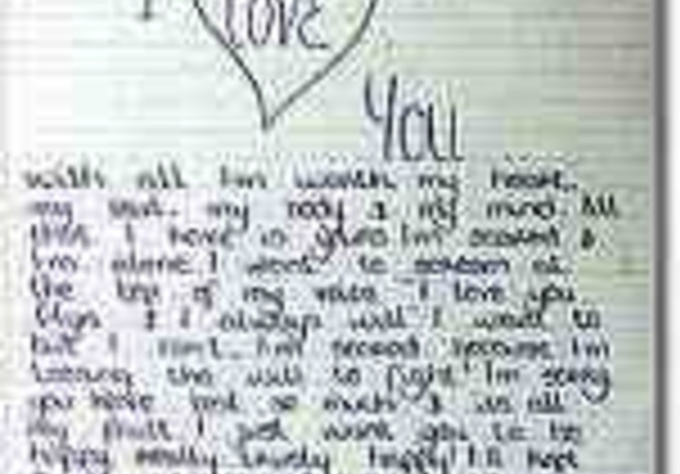 I LOVE
YOU
with all I'm worth my heart,
my soul, my body & my mind. All
that I have is yours I'm scared &
I'm alone I want to scream at
the top of my voice "I love you
& I always will" I want to
but I can't. I'm scared because I'm
loosing the will to fight! I'm sorry
you have lost so much & its all
my fault I just want you to be
happy really truely happy! I'll